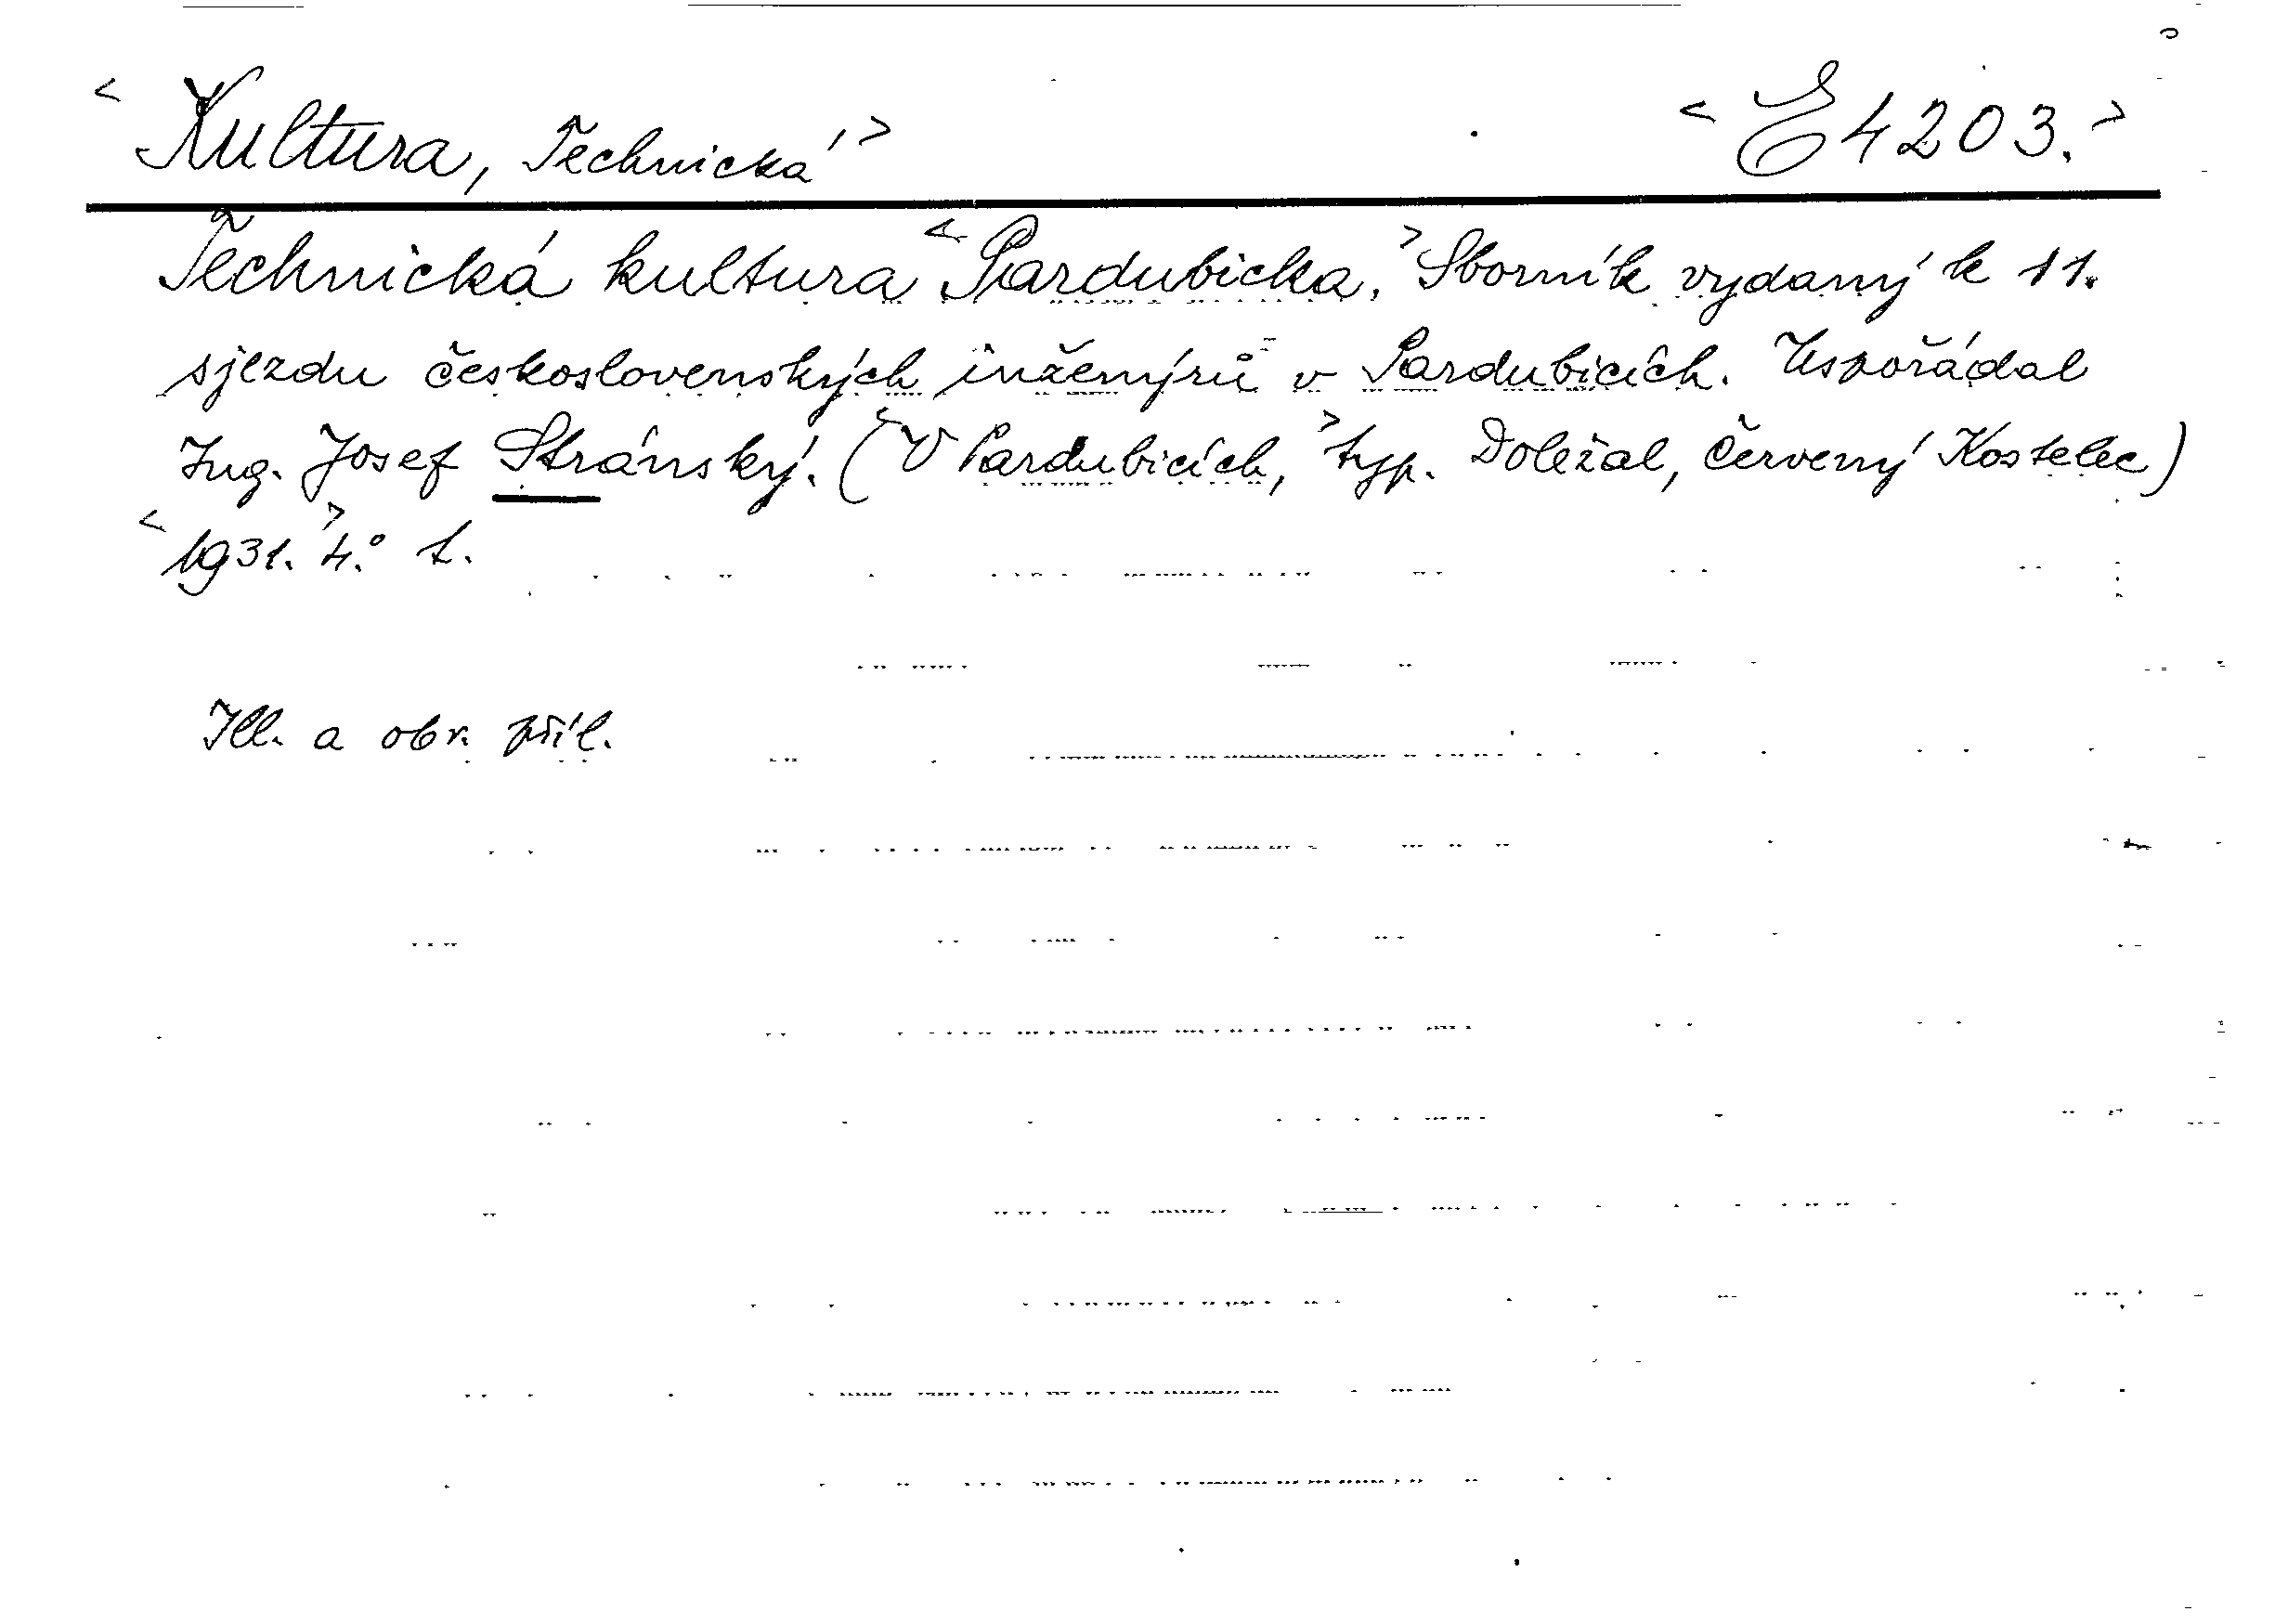 <Kultura, Technická> <E 4203.>
Technická kultura <Pardubicka.> Sborník vydaný k 11.
sjezdu československých inženýrů v Pardubicích. Uspořádal
Ing. Josef Stránský. (<V Pardubicích,> typ. Doležal, Červený Kostelec)
<1931.> 4.° 1.
Ill. a obr. příl.